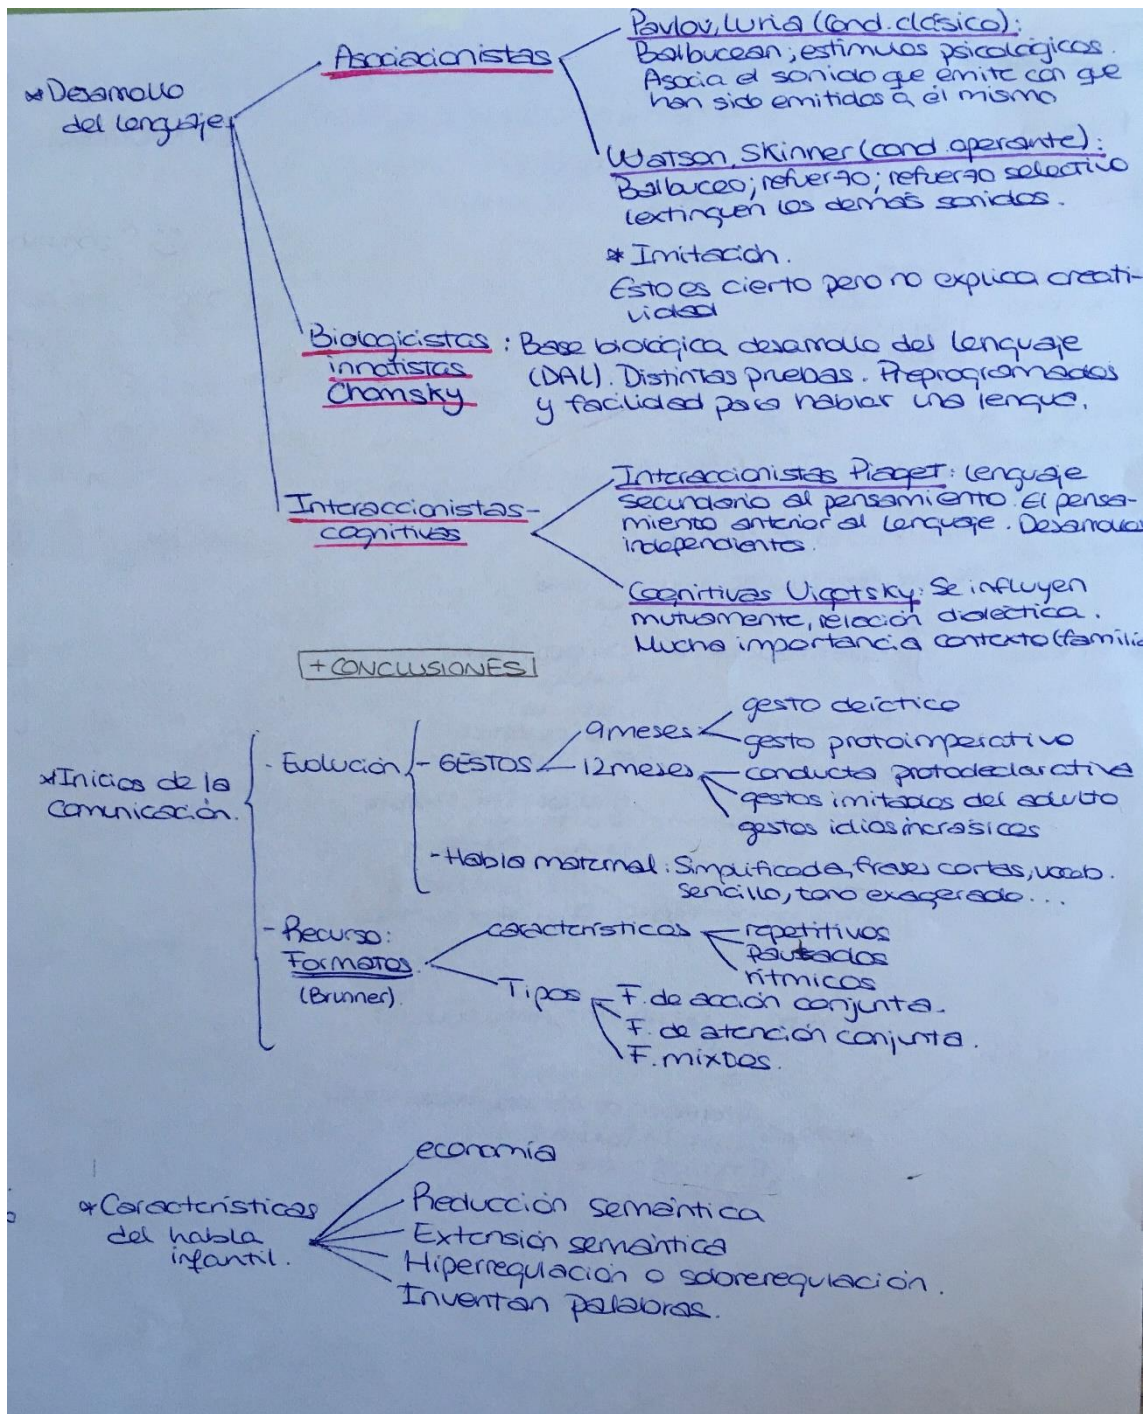 *Desarrollo
del lenguaje
Asociacionistas
Pavlov, Luria (Cond. clásico):
Balbucean; estímulos psicológicos.
Asocia el sonido que emite con que
han sido emitidos a él mismo
Watson, Skinner (cond. operante):
Balbuceo; refuerzo; refuerzo selectivo
(extinguen los demás sonidos.
* Imitación.
Esto es cierto pero no explica creati-
vidad
Biologicistas
innatistas
Chomsky
: Base biológica desarrollo del lenguaje
(DAL). Distintas pruebas. Preprogramados
y facilidad para hablar una lengua.
Interaccionistas-
cognitivas
Interaccionistas Piaget: lenguaje
secundario al pensamiento. El pensa-
miento anterior al lenguaje. Desarrollos
independientes.
Cognitivas Vigotsky: Se influyen
mutuamente, relación dialéctica.
Mucha importancia contexto (familia
+ CONCLUSIONES
*Inicios de la
comunicación.
- Evolución
- GESTOS
9 meses
gesto deíctico
gesto protoimperativo
12 meses
conducta protodeclarativa
gestos imitados del adulto
gestos idiosincrásicos
- Habla maternal: Simplificada, frases cortas, vocab.
sencillo, tono exagerado...
- Recurso:
Formatos
(Brunner).
características
repetitivos
Pautados
rítmicos
Tipos
F. de acción conjunta.
F. de atención conjunta.
F. mixtos.
*Características
del habla
infantil.
economía
Reducción semántica
Extensión semántica
Hiperregulación o sobreregulación.
Inventan palabras.